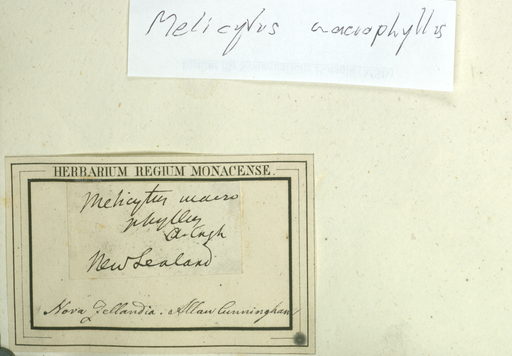 Melicytus macrophyllus
HERBARIUM REGIUM MONACENSE.
Melicytus macro
phyllus
A. Cngh
New Sealand
Nova Zellandia. Allan Cunningham